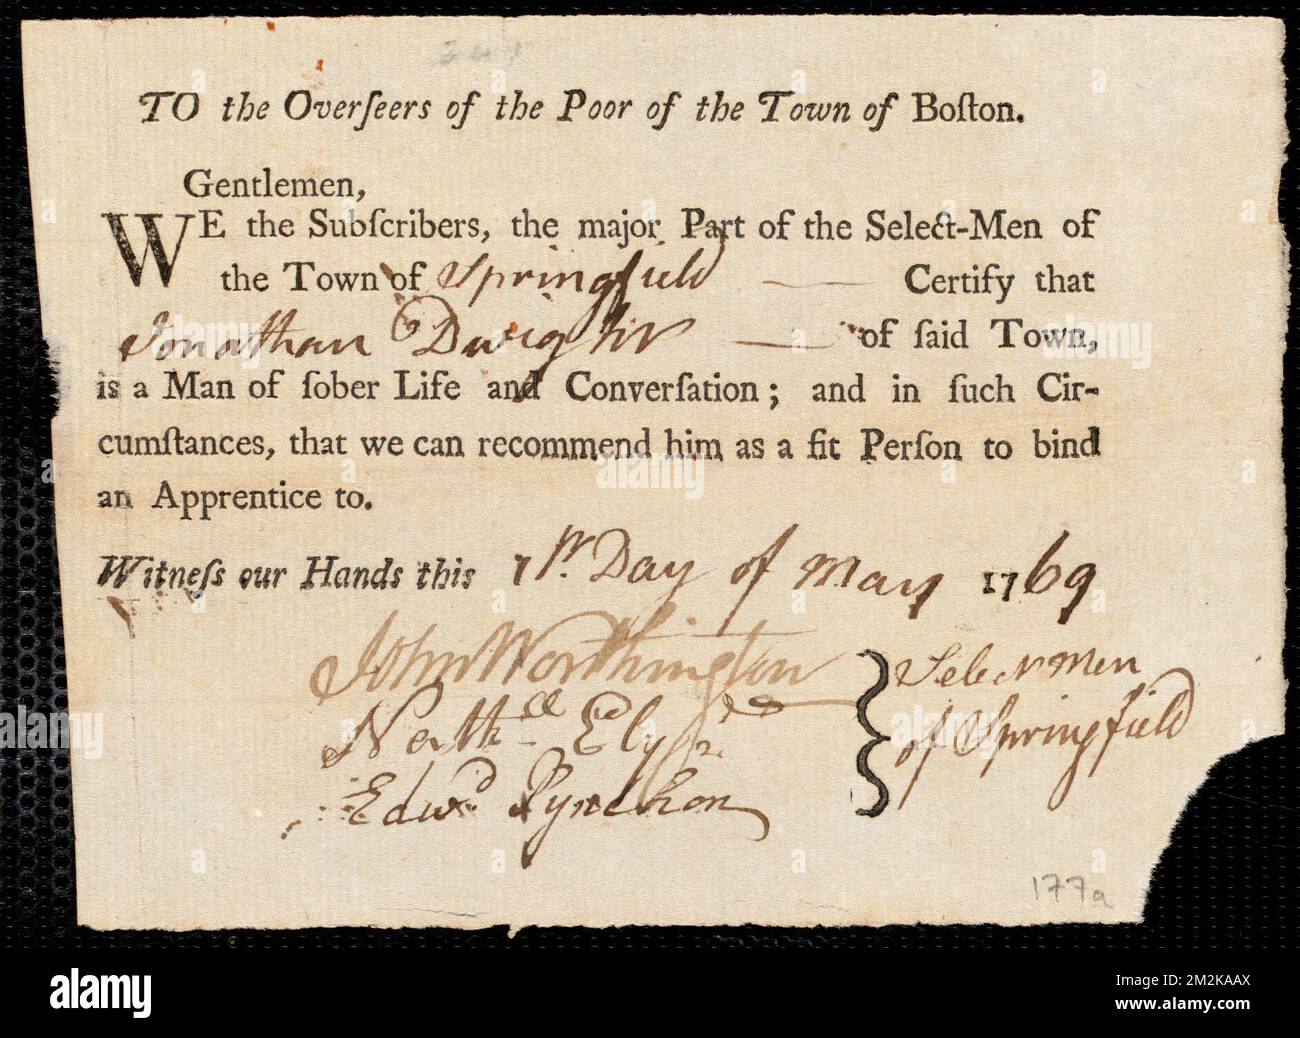 TO the Overſeers of the Poor of the Town of Boſton.
Gentlemen,
WE the Subſcribers, the major Part of the Select-Men of
the Town of Springfield Certify that
Jonathan Dwight of ſaid Town,
is a Man of ſober Life and Converſation; and in ſuch Cir-
cumſtances, that we can recommend him as a fit Perſon to bind
an Apprentice to.
Witneſs our Hands this 1st. Day of May 1769
John Worthington
Nath:ll Ely Jr
Edwd Pynchon
Select Men
of Springfield
177a
alamy
Image ID: 2M2KAAX
www.alamy.com